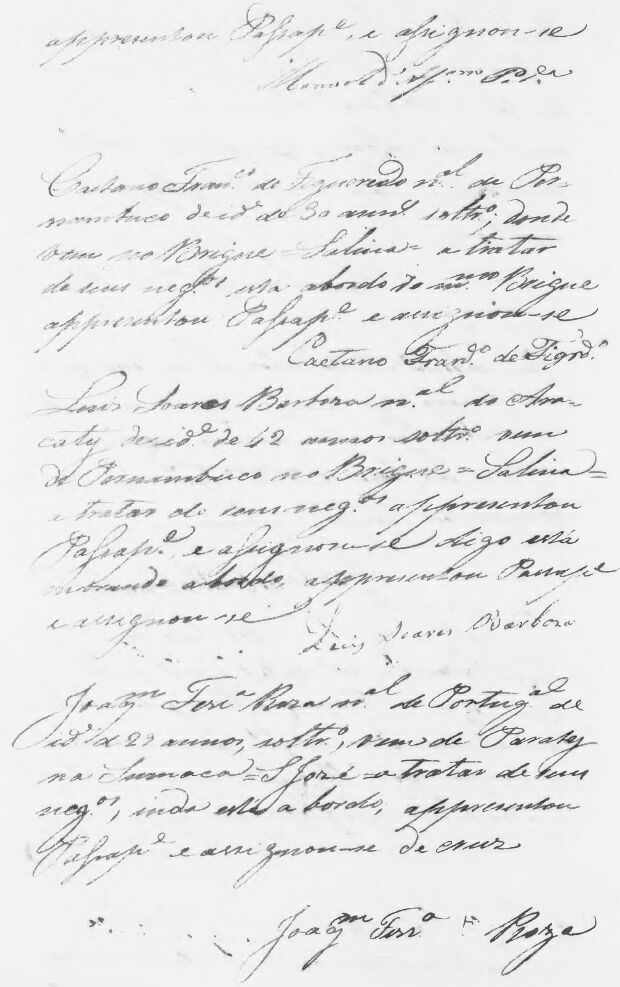 appresentou Passap.e, e assignou-se
Manoel d'
Caetano Fran.co de Figueredo n.al de Per-
nambuco de id.e de 30 annos soltr.o, donde
vem no Brigue = Salina = a tratar
de seus neg.os esta abordo do m.mo Brigue
appresentou Passap.e e assignou-se
Caetano Fran.co de Figrd.o
Luis Soares Barboza n.al do Ara-
caty de id.e de 42 annos soltr.o vem
de Pernambuco no Brigue = Salina =
a tratar de seus neg.os appresentou
Passap.e, e assignou-se digo está
morando abordo, appresentou Passap.e
e assignou-se
Luis Soares Barboza
Joaq.m Ferr.a Roza n.al de Portug.al de
id.e d 29 annos, soltr.o, vem de Paraty
na Sumaca = S José = a tratar de seus
neg.os, inda está a bordo, appresentou
Passap.e e assignou-se de cruz
Joaq.m Ferr.a + Roza